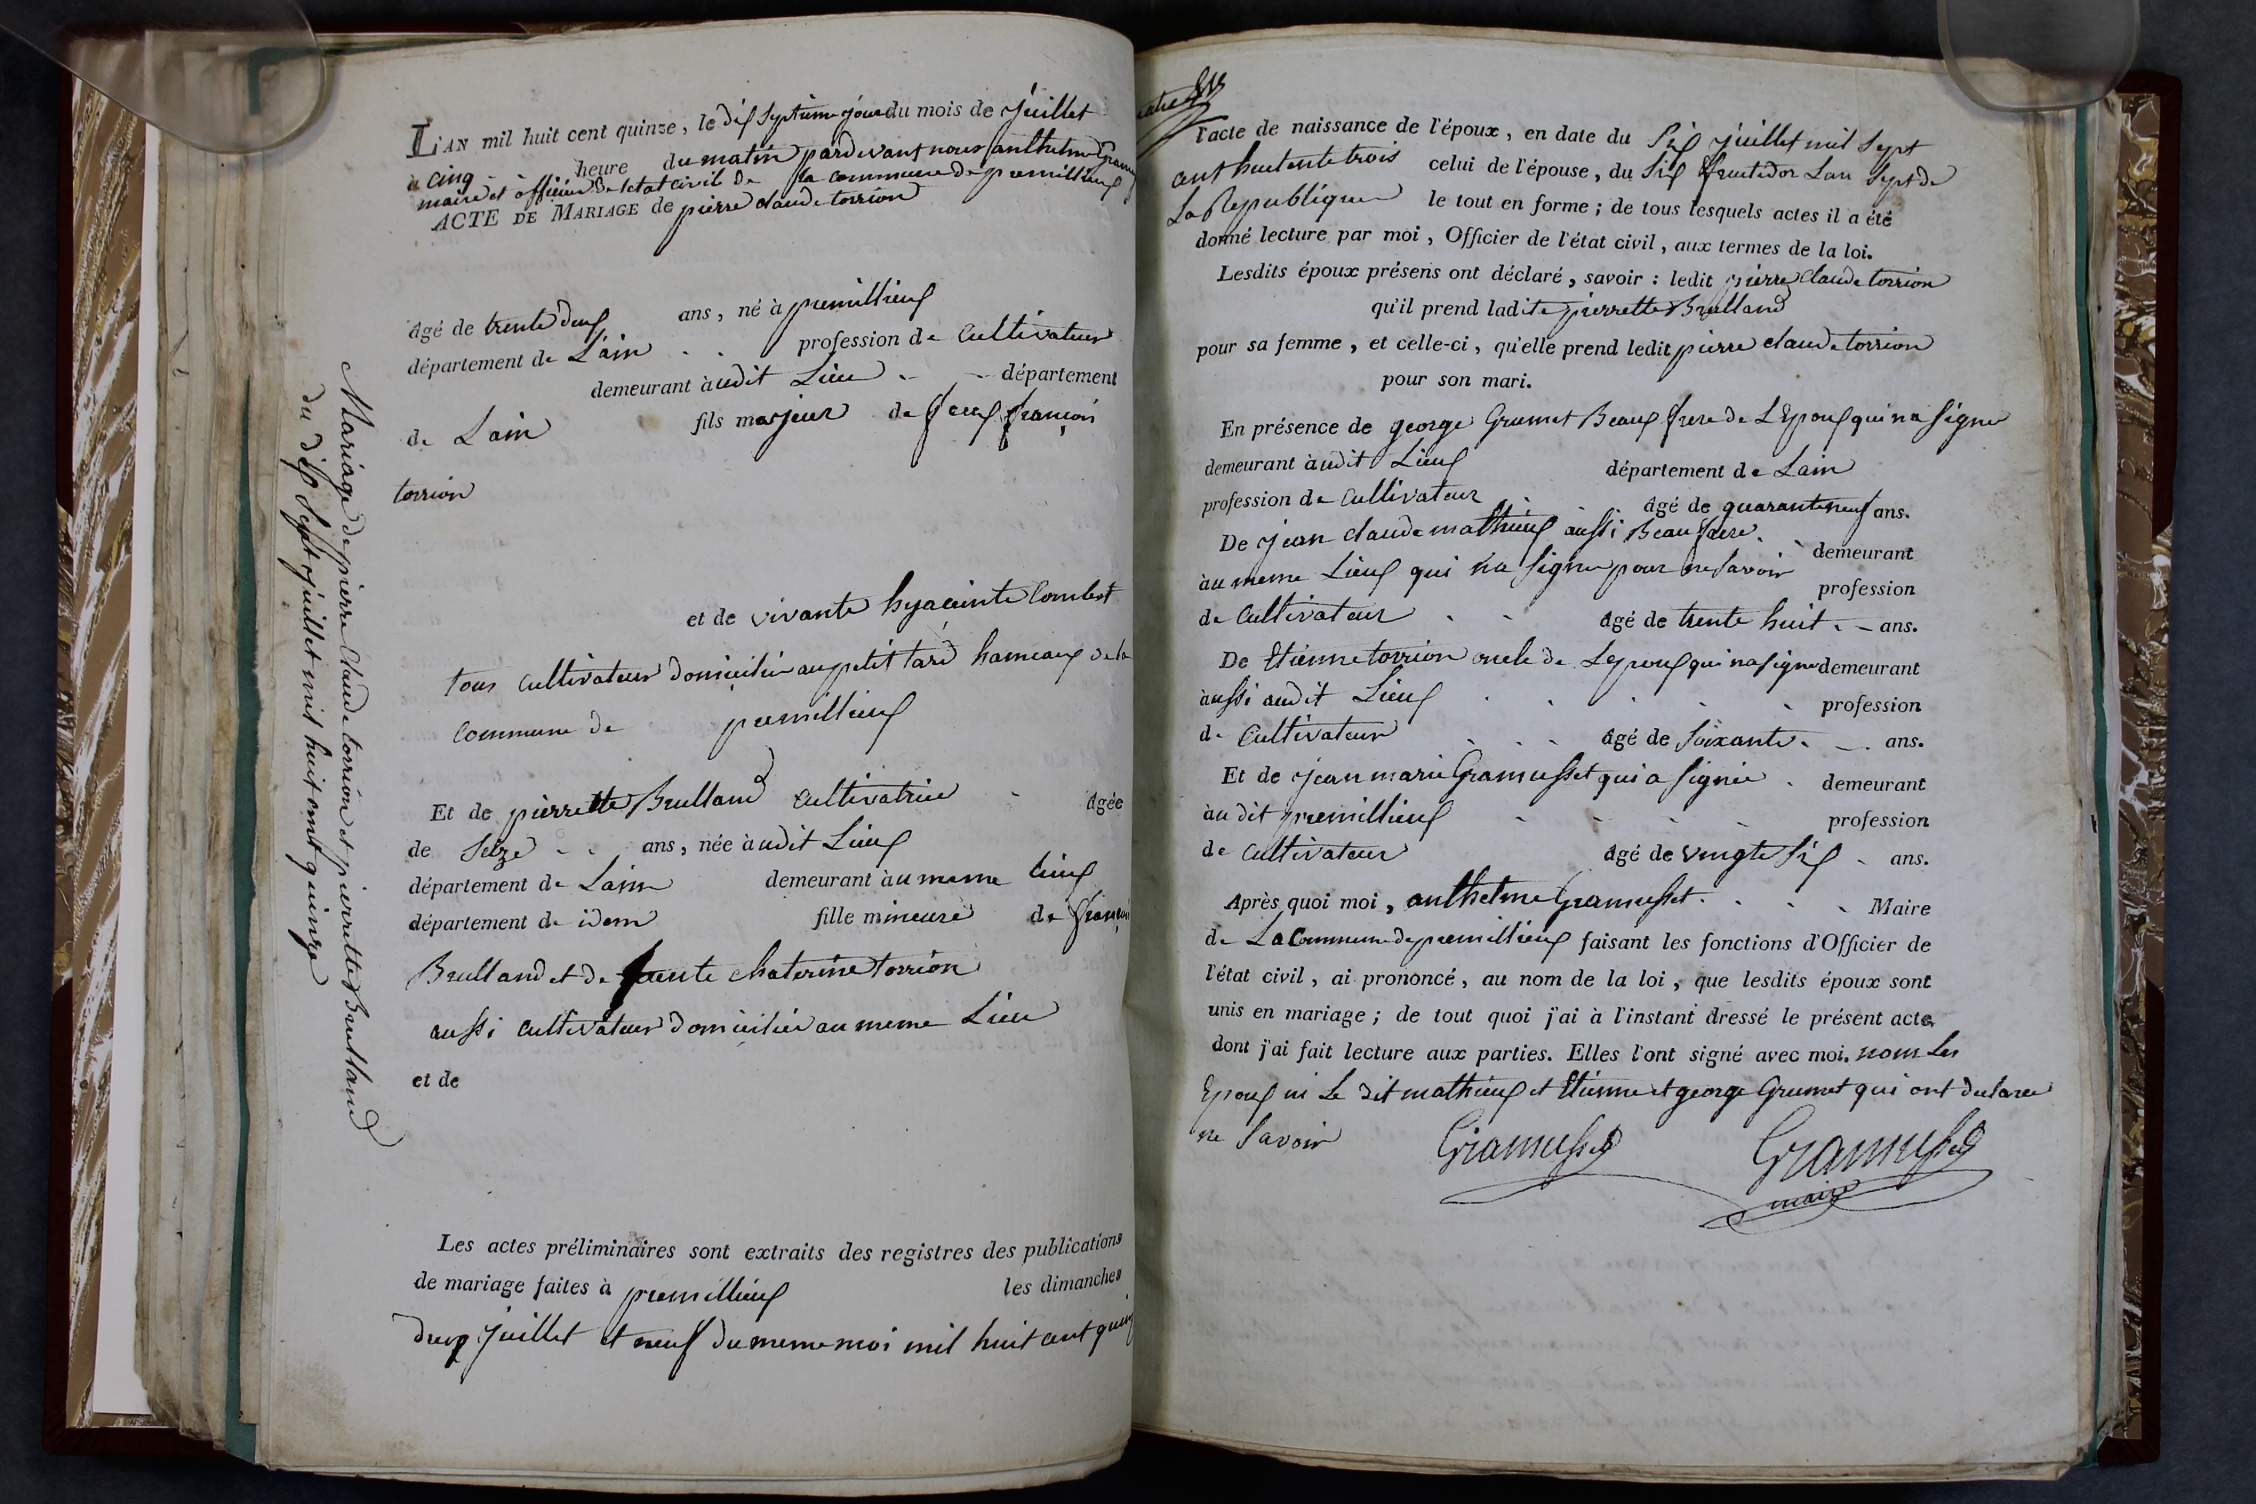 Mariage de pierre Claude torrion et pierrette Brulland
du dix Sept juillet mil huit cent quinze
L'AN mil huit cent quinze, le dix Septieme jour du mois de juillet
à cinq heure du matin pardevant nous anthelme Gramu
maire et officier de letat civil de la commune de premillieux
ACTE DE MARIAGE de pierre claude torrion
âgé de trente deux ans, né à premillieux
département de Lain profession de Cultivateur
demeurant audit Lieu département
de Lain fils majeur de feux françois
torrion
et de vivante hyacinte Combet
tous cultivateur domicilié au petit tard hameaux de la
commune de premillieux
Et de pierrette Brulland cultivatrice âgée
de Seize ans, née audit Lieux
département de Lain demeurant au meme lieux
département de idem fille mineure de françoi
Brulland et de feente chaterine torrion
aussi cultivateur domicilié au meme Lieu
et de
Les actes préliminaires sont extraits des registres des publications
de mariage faites à premillieux les dimanches
deux juillet et neuf du meme moi mil huit cent quin
l'acte de naissance de l'époux, en date du Six juillet mil Sept
cent huitente trois celui de l'épouse, du Six fructidor Lan Sept de
La Republique le tout en forme; de tous lesquels actes il a été
donné lecture par moi, Officier de l'état civil, aux termes de la loi.
Lesdits époux présens ont déclaré, savoir: ledit pierre Claude torrion
qu'il prend ladite pierrette Brulland
pour sa femme, et celle-ci, qu'elle prend ledit pierre claude torrion
pour son mari.
En présence de george Grumet Beaux frere de LEpoux qui na Signer
demeurant audit Lieux département de Lain
profession de Cultivateur âgé de quaranteneuf ans.
De jean claude mathieux aussi Beau frere demeurant
au meme Lieux qui na Signer pour ne Savoir profession
de Cultivateur âgé de trente huit ans.
De Etienne torrion oncle de Lepoux qui na signer demeurant
aussi audit Lieux profession
de Cultivateur âgé de Soixante ans.
Et de jean marie Gramusset qui a Signée demeurant
au dit premillieux profession
de Cultivateur âgé de vingte Six ans.
Après quoi moi, anthelme Gramusset Maire
de La Commune de premillieux faisant les fonctions d'Officier de
l'état civil, ai prononcé, au nom de la loi, que lesdits époux sont
unis en mariage; de tout quoi j'ai à l'instant dressé le présent acte
dont j'ai fait lecture aux parties. Elles l'ont signé avec moi. nom Les
Epoux ni Le dit mathieux et Etienne et george Grumet qui ont declaree
ne Savoir Gramusset Gramusset
maire